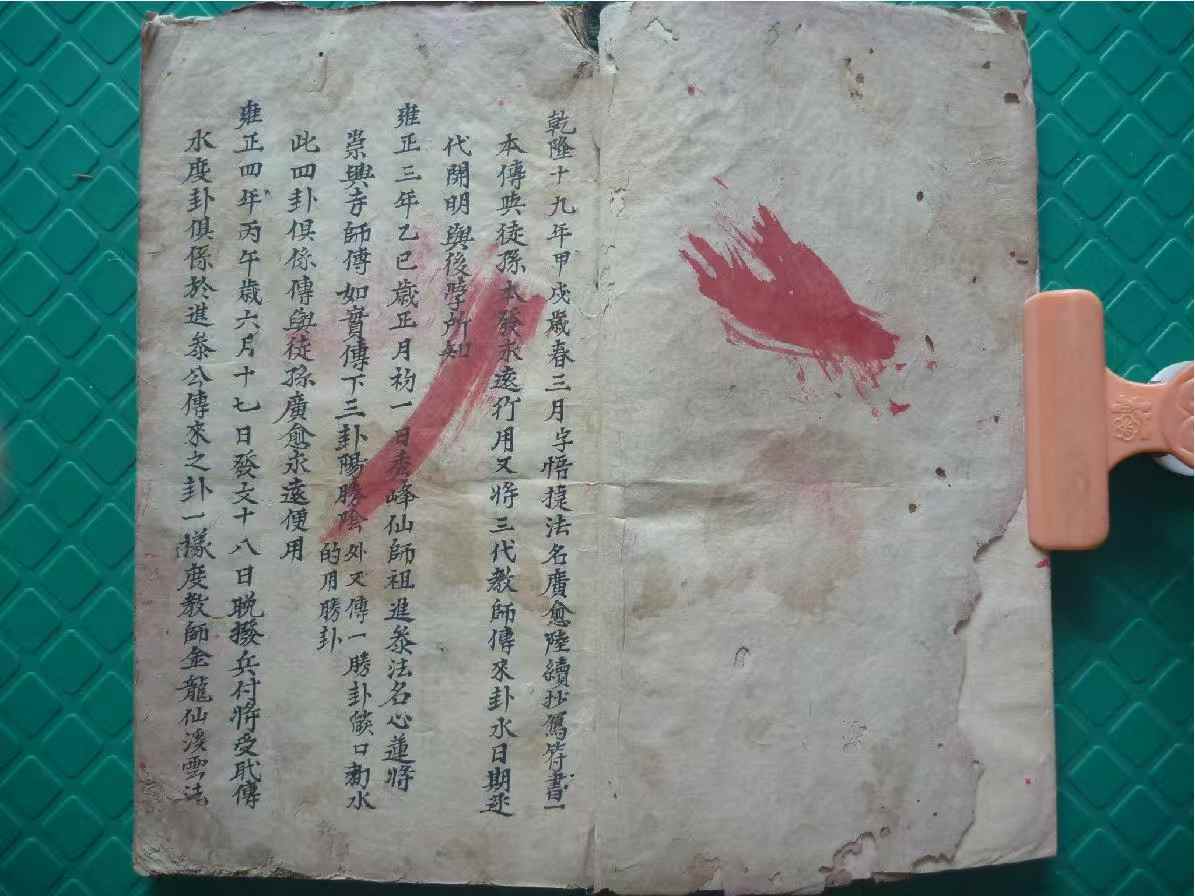 乾隆十九年甲戌歲春三月字悟捷法名廣愈陸續抄寫符書一
本傳與徒孫本發永遠行用又將三代教師傳來卦水日期逐
代開明與後學所知
雍正三年乙巳歲正月初一日秀峰仙師祖進泰法名心蓮將
崇興寺師傅如實傳下三卦陽勝陰外又傳一勝卦傾口勅水
的用勝卦
此四卦俱係傳與徒孫廣愈永遠便用
雍正四年丙午歲六月十七日發文十八日晚撥兵付將受耽傳
水度卦俱係於進泰公傳來之卦一様度教師金龍仙溪雲法